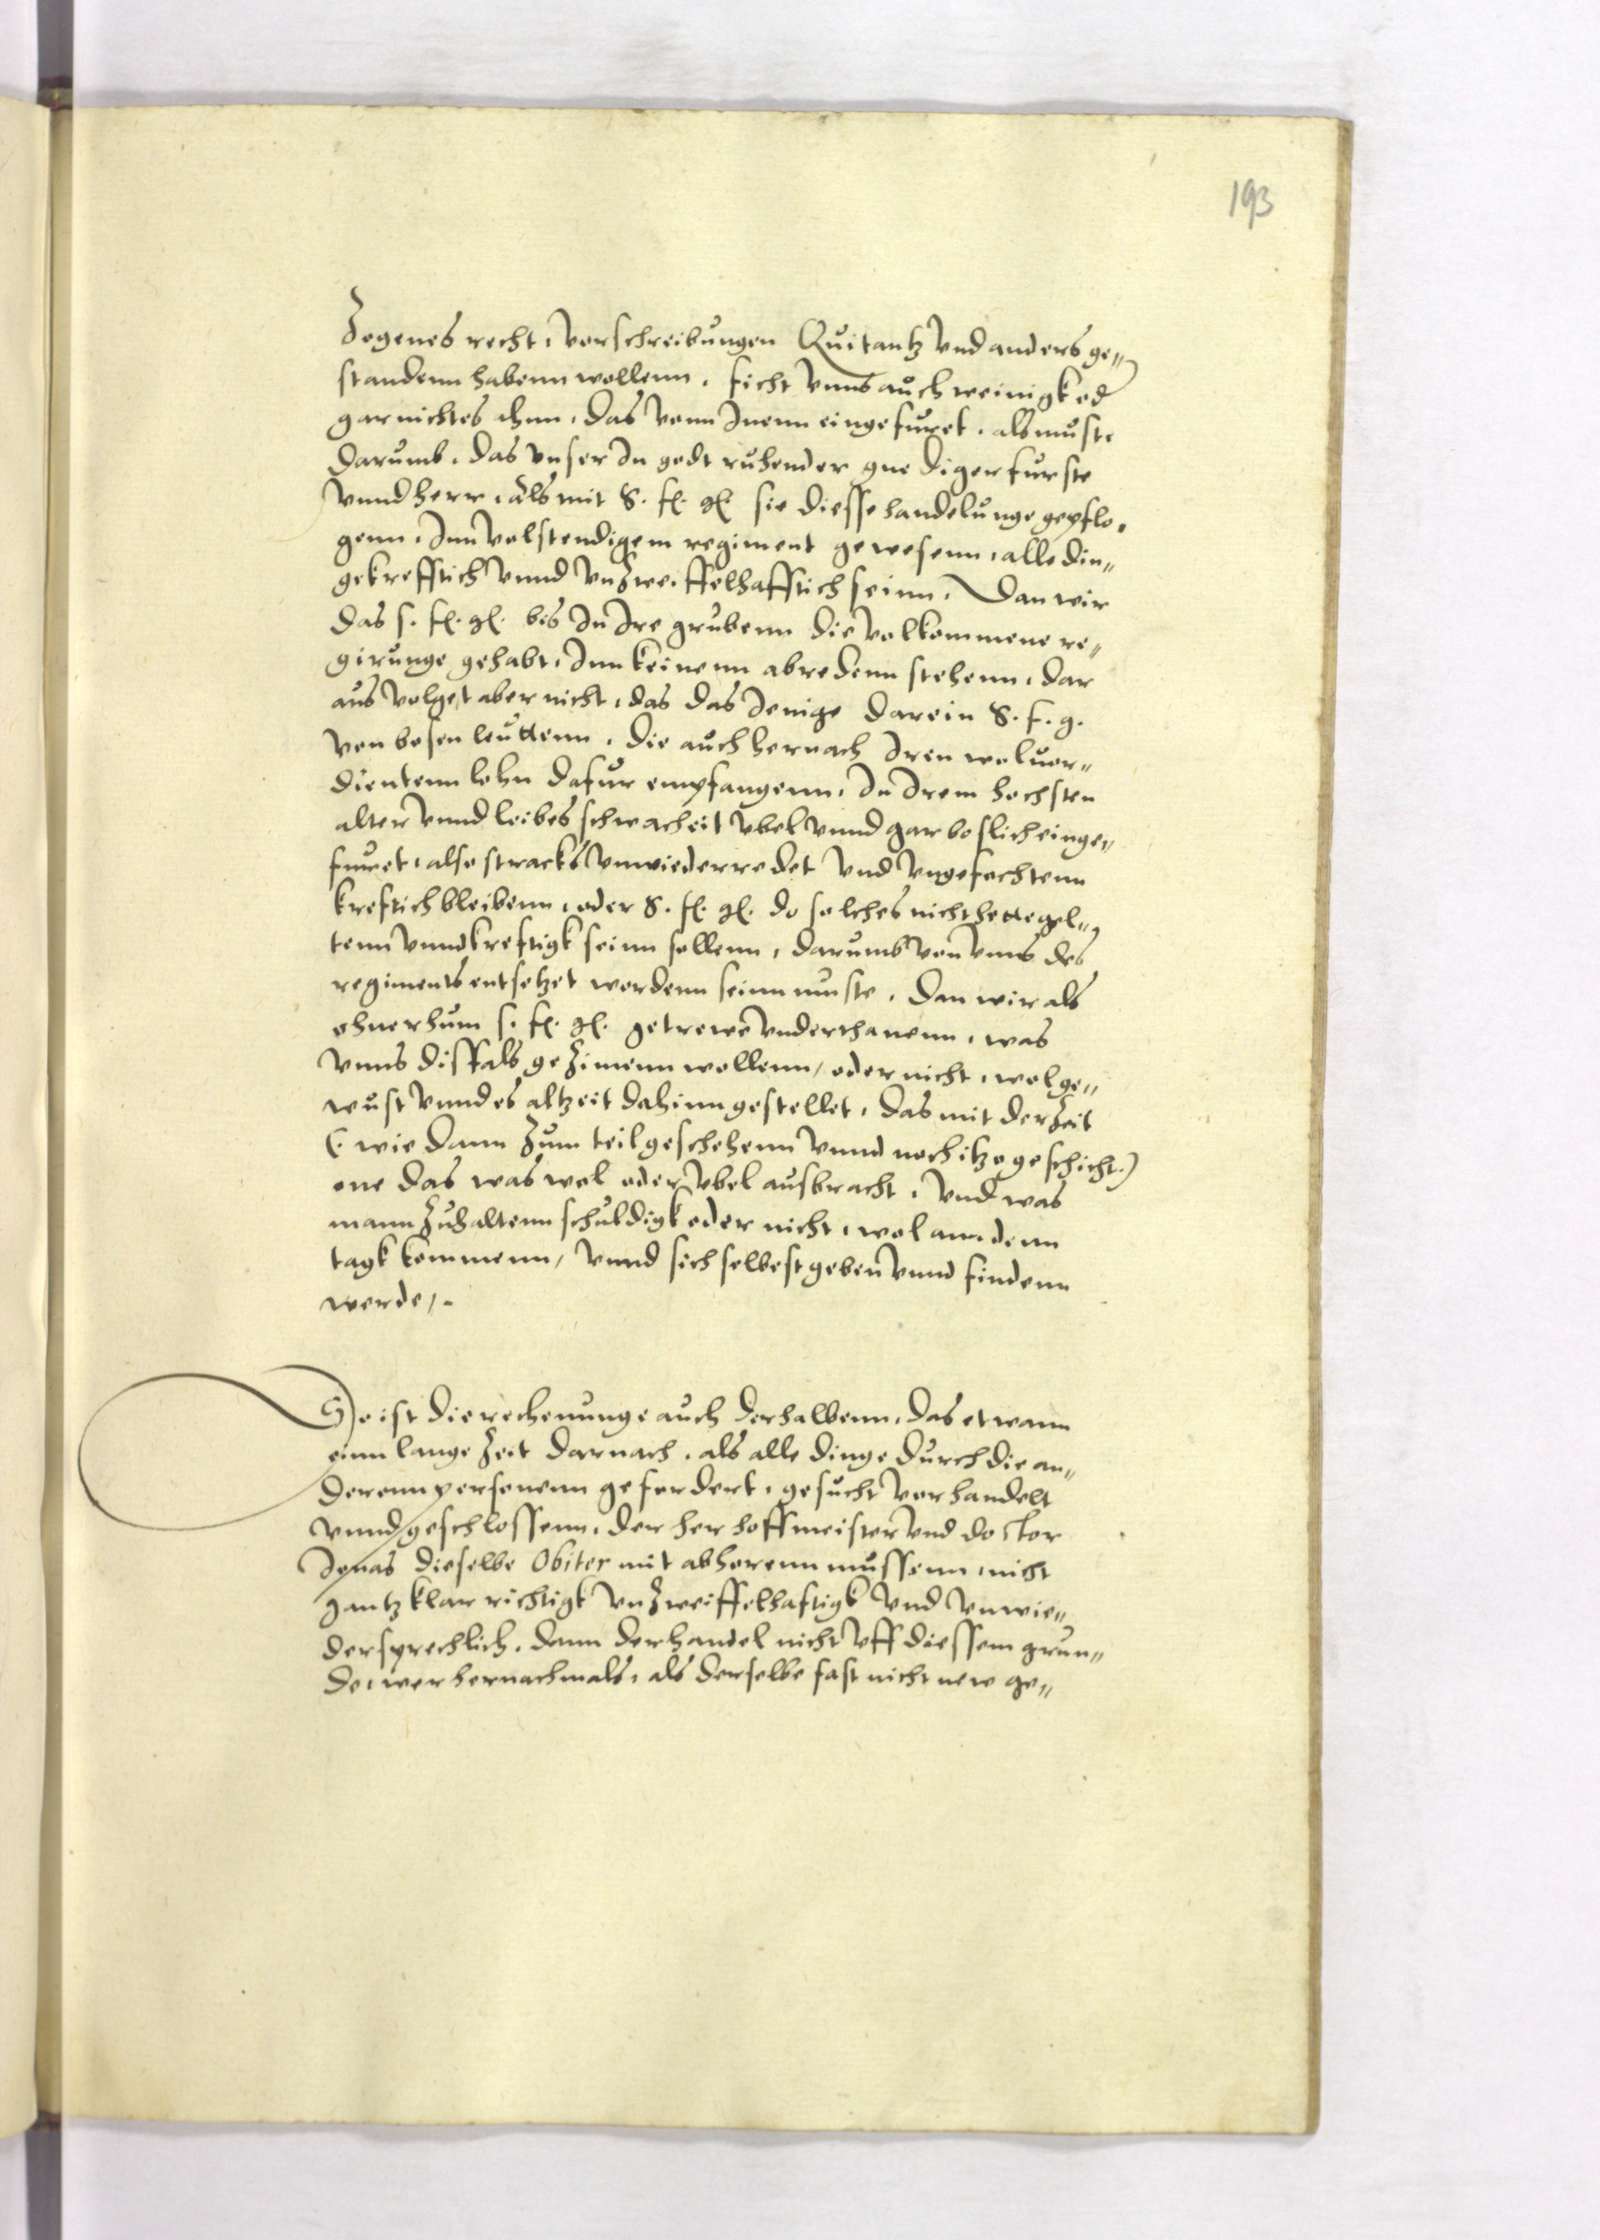 193
Zogenes recht, vorschreibungen Quitantz vnd anders ge„
standenn habenn wollenn, ficht vnns auch weinigk od
gar nichtes ahnn, das vonn Inenn eingefuret, als muste
darumb, das vnser In godt ruhender gnediger furste
vnnd herr, als mit S. f. g. sie diesse handelunge gepflo„
genn, Inn volstendigem regiment gewesenn, alle din„
ge krefftich vnnd vnzweiffelhafftich seinn, Dan wir
das s. f. g. bis In Ire grubenn die volkommene re„
girunge gehabt, Inn keinenn abredenn stehenn, dar
aus volget aber nicht, das das Jenige darein S. f. g.
von bosen leuttenn, die auch hernach Iren woluor„
dientenn lohn dafur empfangenn, In Irem hochsten
alter vnnd leibes schwacheit vbel vnnd gar boslich einge„
furet, also stracks vnwiederredet vnd vngefochtenn
kreftich bleibenn, oder S. f. g. do solches nicht hette gel„
tenn vnnd kreftigk seinn sollenn, darumb von vnns des
regiments entsetzet wordenn seinn muste, Dan wir als
ohne rhum s. f. g. getrewe vnderthanenn, was
vnns disfals gezimenn wollenn, oder nicht, wol ge„
wust vnnd es altzeit dahinn gestellet, das mit der zeit
(wie dann zum teil geschehenn vnnd noch itzo geschicht)
one das was wol oder vbel ausbracht, vnd was
mann zuhaltenn schuldigk oder nicht, wol ann denn
tagk kommenn, vnnd sich selbest geben vnnd findenn
werde,
So ist die rechenunge auch derhalbenn, das etwann
einn lange zeit darnach, als alle dinge durch die an„
derenn personenn gefordert, gesucht vorhandelt
vnnd geschlossenn, der her hoffmeister vnd doctor
Jonas dieselbe Obiter mit abhorenn mussenn, nicht
gantz klar richtigk vnzweiffelhaftigk vnd vnwie„
dersprechlich, dann der handel nicht vff diessem grun„
de, wer hernachmals, als derselbe fast nicht new ge„